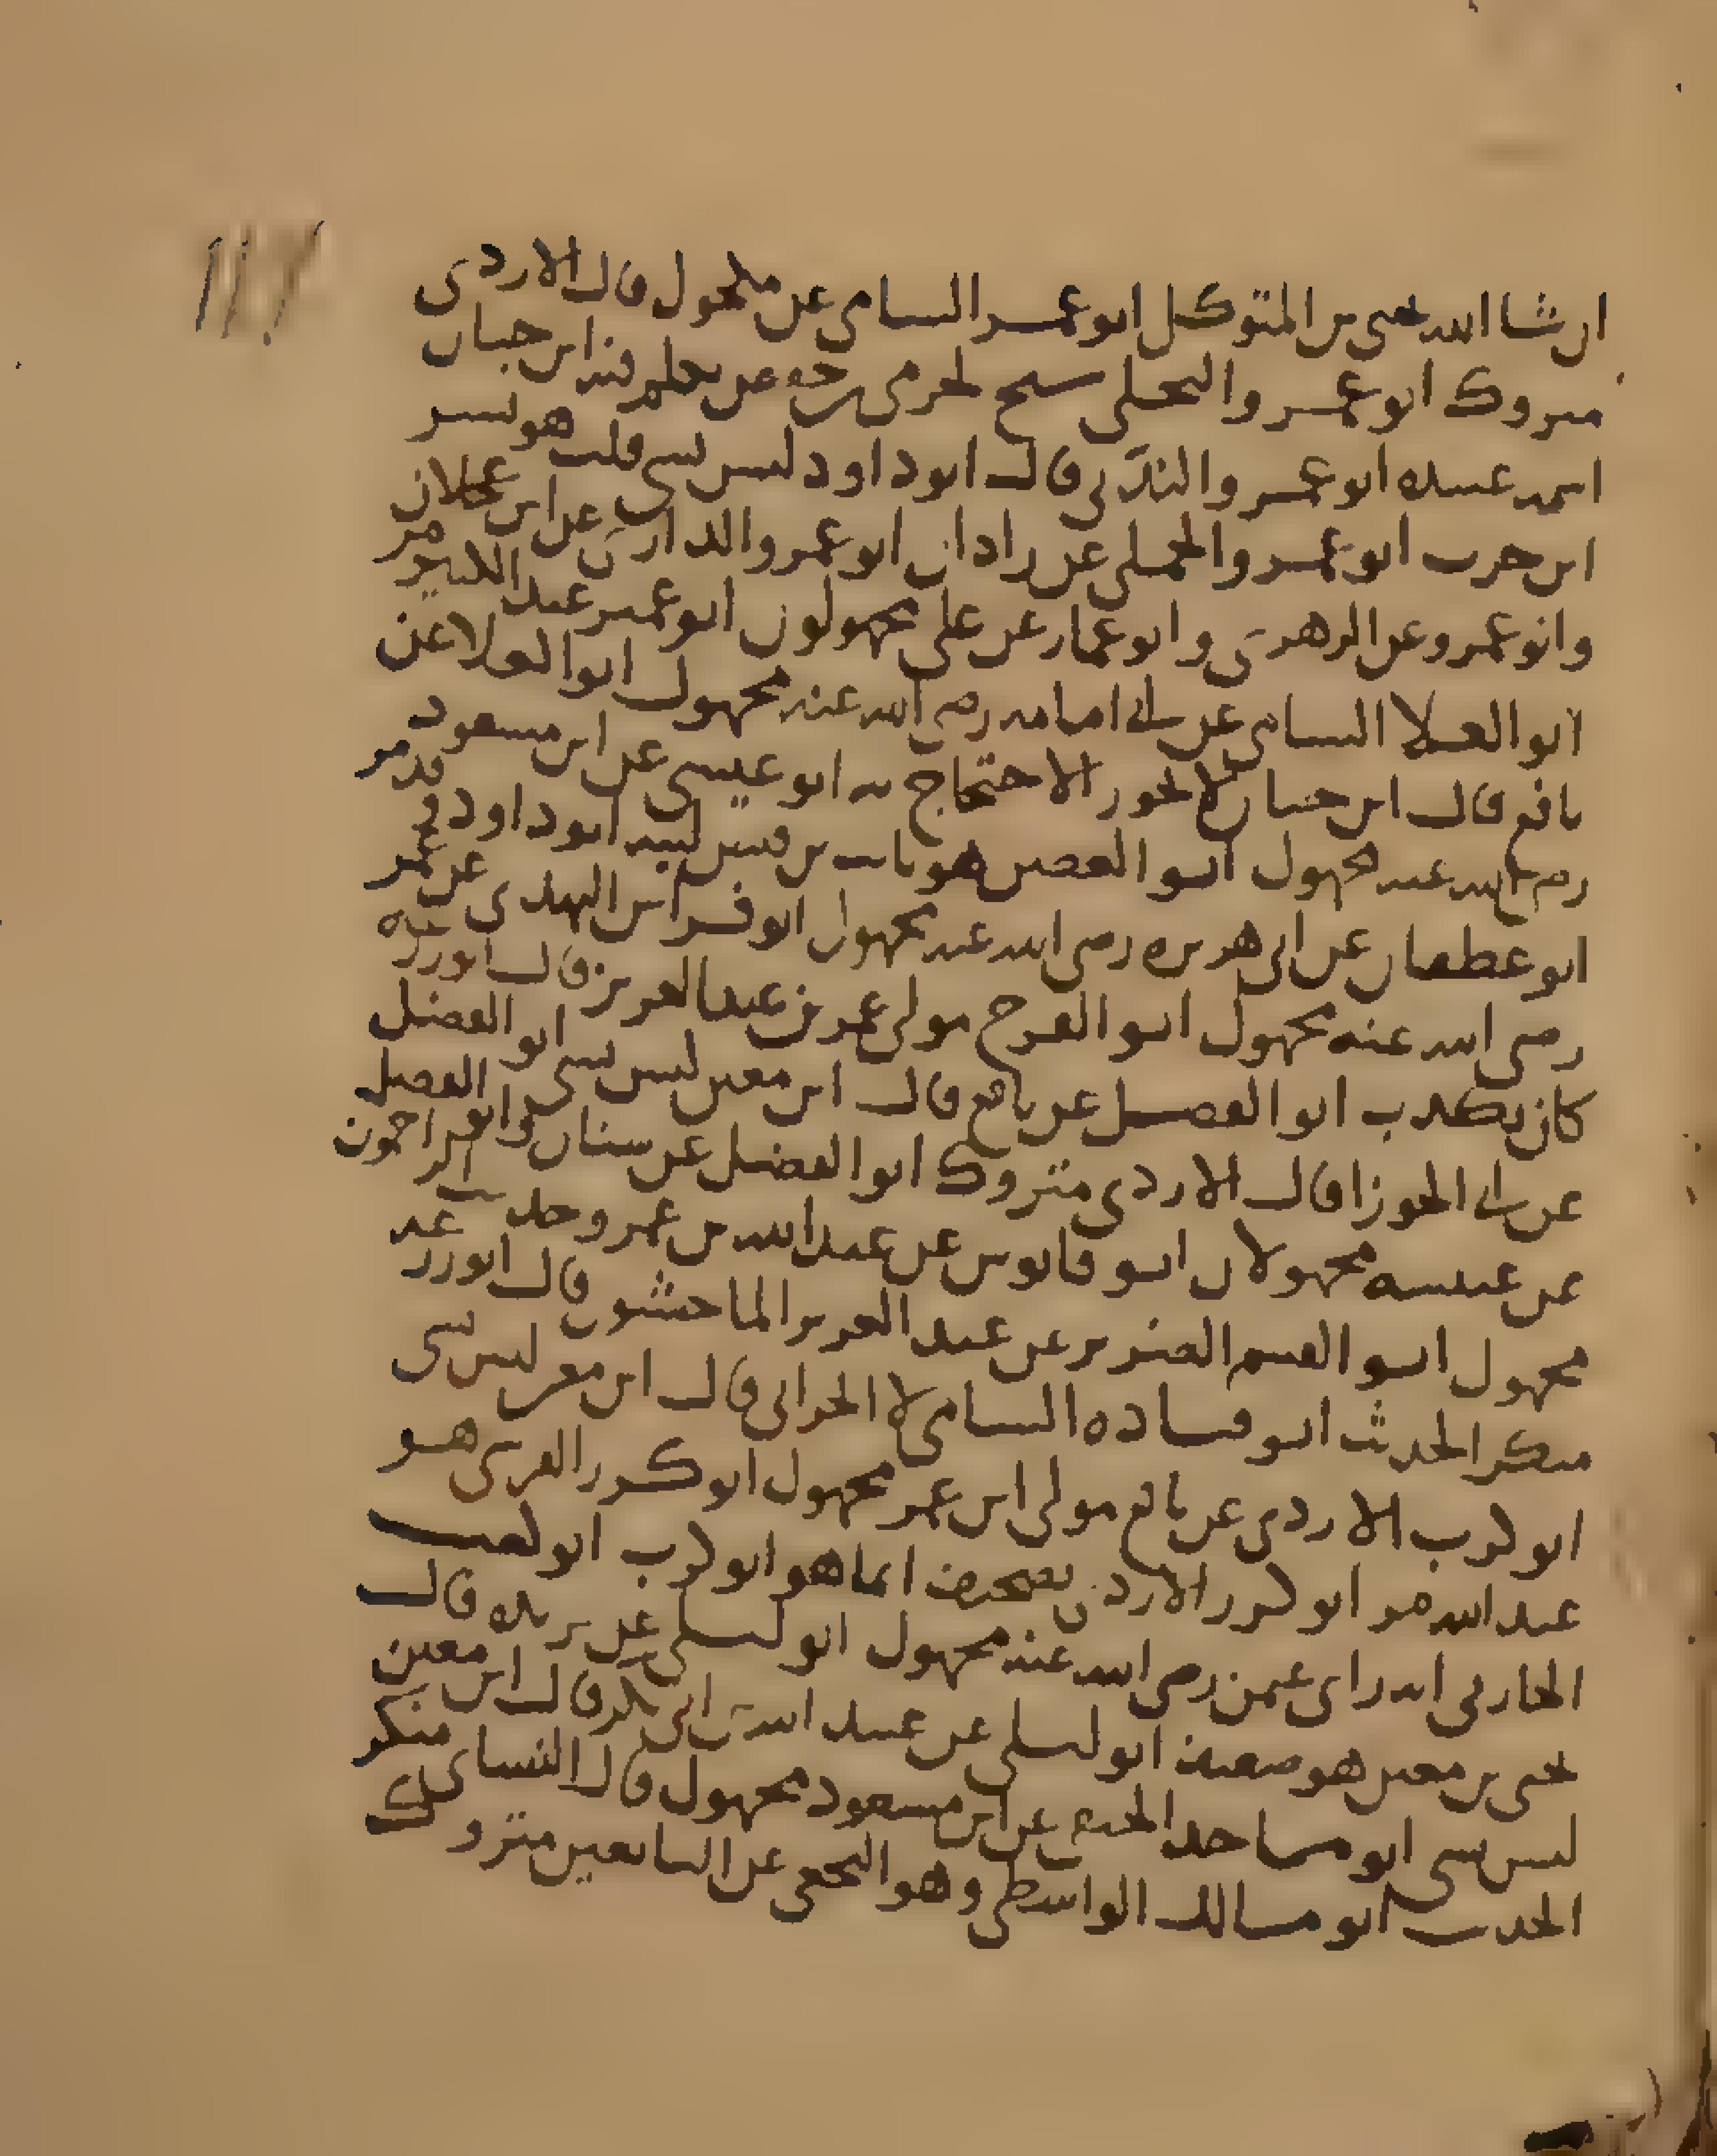 ان شا الله يحيى بن المتوكل ابو عمر السامي عن مكحول قال الازدي
متروك ابو عمرو البجلي شيخ لحرمي بن حفص قيل فيه ابن حبان
اسمه عبيده ابو عمرو الندبي قال ابو داود ليس بشي قلت هو بشر
ابن حرب ابو عمرو الجملي عن زاذان ابو عمرو الدارسي عن ابن عجلان
وابو عمرو عن الزهري وابو عمار عن علي مجهولون ابو عمير عبد الكبير مر
ابو العلا السامي عن ابي امامه رضي الله عنه مجهول ابو العلا عن
نافع قال ابن حبان لا يجوز الاحتجاج به ابو عيسى عن ابن مسعود
رضي الله عنه مجهول ابو الغصن هو ثابت بن قيس لينه ابو داود وقد مر
ابو غطفان عن ابي هريره رضي الله عنه مجهول ابو فراس النهدي عن عمر
رضي الله عنه مجهول ابو الفرج مولى عمر بن عبد العزيز قال ابو زرعه
كان يكذب ابو الفضل عن نافع قال ابن معين ليس بشي ابو الفضل
عن ابي الجوزا قال الازدي متروك ابو الفضل عن سنان وابو الفضل
عن عنبسه مجهولان ابو قابوس عن عبد الله بن عمرو حديث الراحمون
مجهول ابو القسم الضرير عن عبد العزيز الماجشون قال ابو زرعه
منكر الحديث ابو قتاده السامي لا الحراني قال ابن معين ليس بشي
ابو كرب الازدي عن نافع مولى ابن عمر مجهول ابو كرز القرشي هو
عبد الله مر ابو كرز الازدي تصحيف انما هو ابو كرب ابو كعب
الحارثي انه راى عثمن رضي الله عنه مجهول ابو ليلى عن بريده قال
يحيى بن معين هو ضعيف ابو ليلى عن عبد الله بن ابي بكر قال ابن معين
ليس بشي ابو ماجد الحنفي عن ابن مسعود مجهول قال النسائي منكر
الحديث ابو مالك الواسطي وهو النخعي عن التابعين متروك